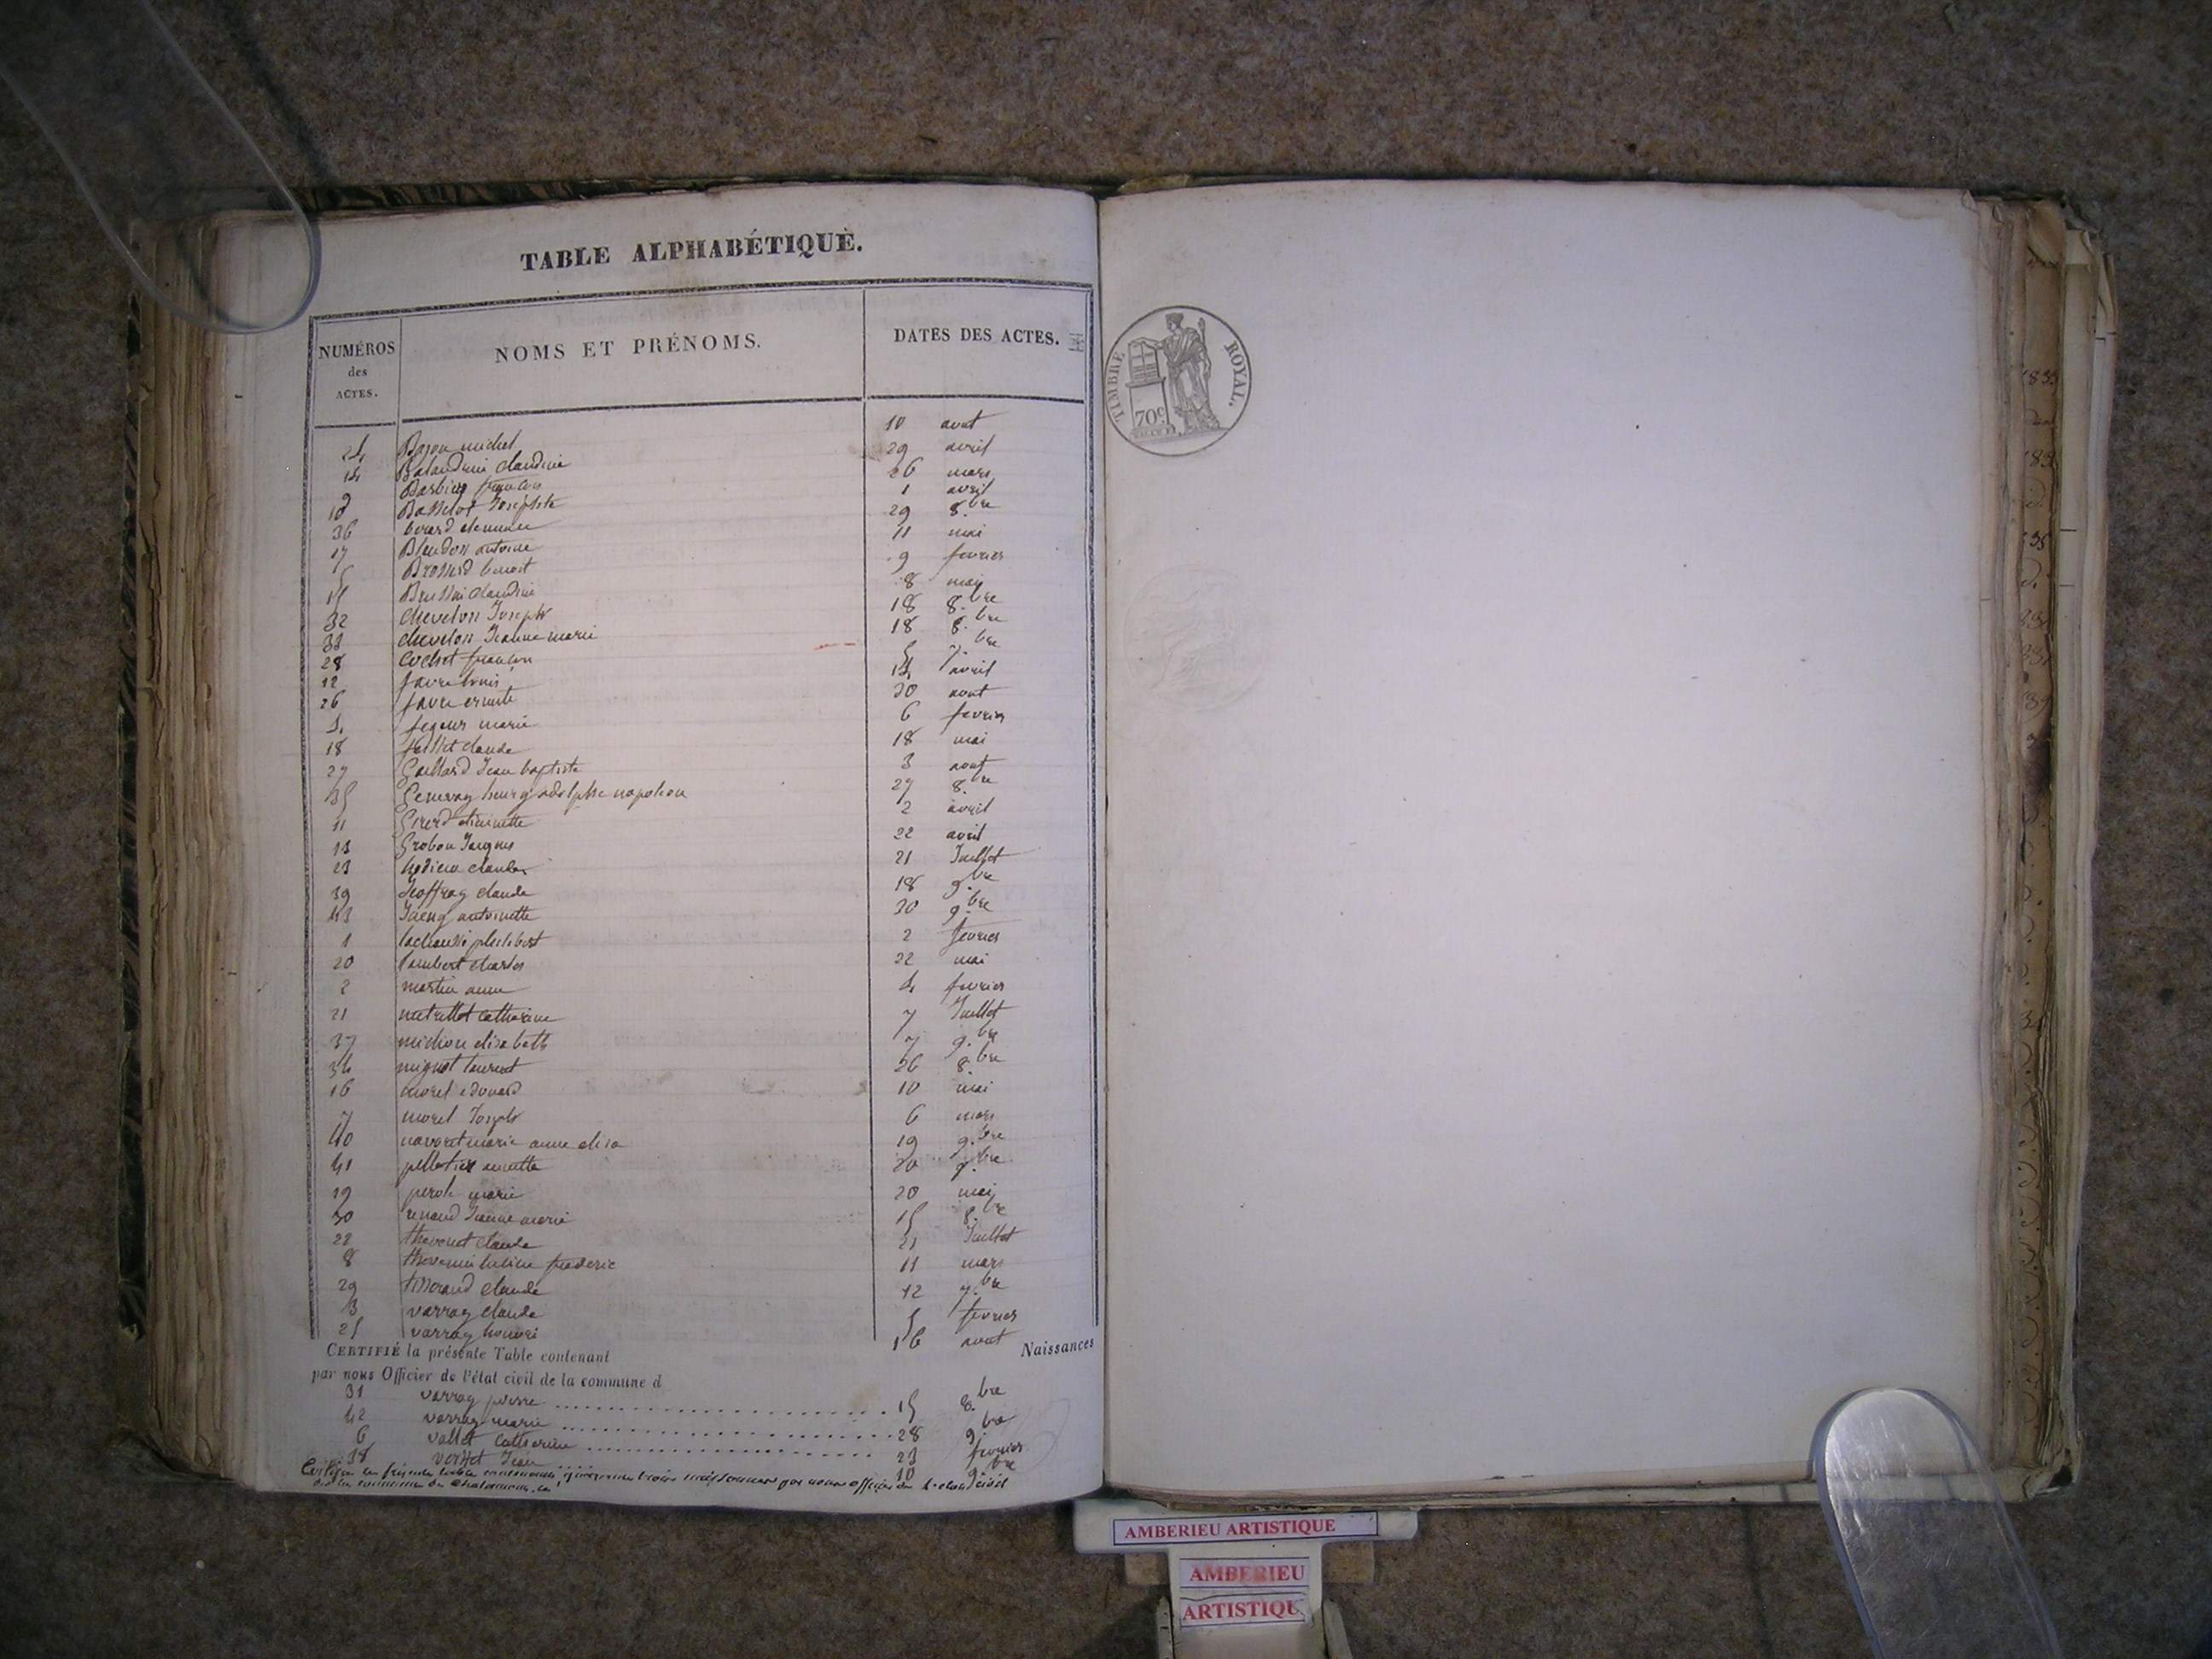 TABLE ALPHABÉTIQUE.
NUMÉROS des ACTES. NOMS ET PRÉNOMS. DATES DES ACTES.
24 Bozon michel 10 aout
14 Balandrin claudine 29 avril
Barbier françois 26 mars
10 Basselot Josephte 1 avril
36 berard clemence 29 8.bre
17 Blondon antoine 11 mai
5 Brossard benoit 9 fevrier
15 claudine 8 mai
32 chevelon Joseph 18 8.bre
33 chevelon Jeanne marie 18 8.bre
28 Cochet françois 5 7.bre
12 favre louis 14 avril
26 favre ernute 20 aout
4 marie 6 fevrier
18 claude 18 mai
27 Gaillard Jean baptiste 3 aout
35 Genevay henry adolphe napoleon 27 8.bre
11 Girerd 2 avril
13 Grobon Jacques 22 avril
23 hodieu claude 21 Juillet
39 Geoffray claude 18 9.bre
43 antoinette 30 9.bre
1 philibert 2 fevrier
20 lambert charles 22 mai
2 martin anne 4 fevrier
21 mutrellot catherine 7 Juillet
37 michon elisabeth 7 9.bre
34 mignot laurent 26 8.bre
16 morel edouard 10 mai
7 morel Joseph 6 mars
40 navoret marie anne elisa 19 9.bre
41 pelletier annette 20 9.bre
19 perol marie 20 mai
30 renaud Jeanne marie 15 8.bre
22 thevenet claude 21 Juillet
8 thevenin frederic 11 mars
29 tisserand claude 12 7.bre
3 varray claude 5 fevrier
25 varray honoré 16 aout
Naissances
CERTIFIÉ la présente Table contenant
par nous Officier de l'état civil de la commune d
31 varray pierre 15 8.bre
42 varray marie 28 9.bre
6 vallet catherine 23 fevrier
38 Jean 10 9.bre
Certifié la présente table contenant quarante trois naissances par nous officier de l'etat civil
de la commune de Chalamont
TIMBRE ROYAL.
70c
AMBERIEU ARTISTIQUE
AMBERIEU
ARTISTIQU